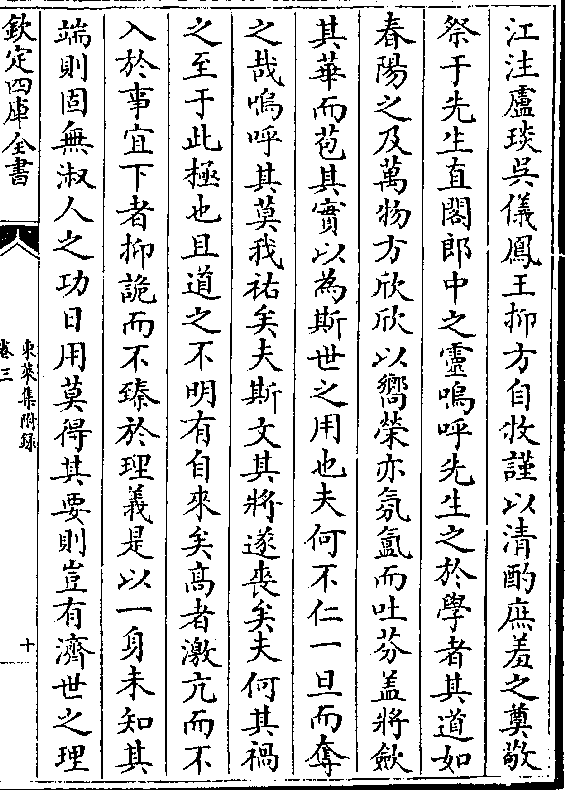 江注盧琰吳儀鳳王抑方自牧謹以清酌庶羞之奠敬
祭于先生直閣郎中之靈嗚呼先生之於學者其道如
春陽之及萬物方欣欣以嚮榮亦氛氳而吐芬蓋將歛
其華而苞其實以為斯世之用也夫何不仁一旦而奪
之哉嗚呼其莫我祐矣夫斯文其將遂喪矣夫何其禍
之至于此極也且道之不明有自來矣高者激亢而不
入於事宜下者抑詭而不臻於理義是以一身未知其
端則固無淑人之功日用莫得其要則豈有濟世之理
欽定四庫全書
東萊集附錄
卷三
十